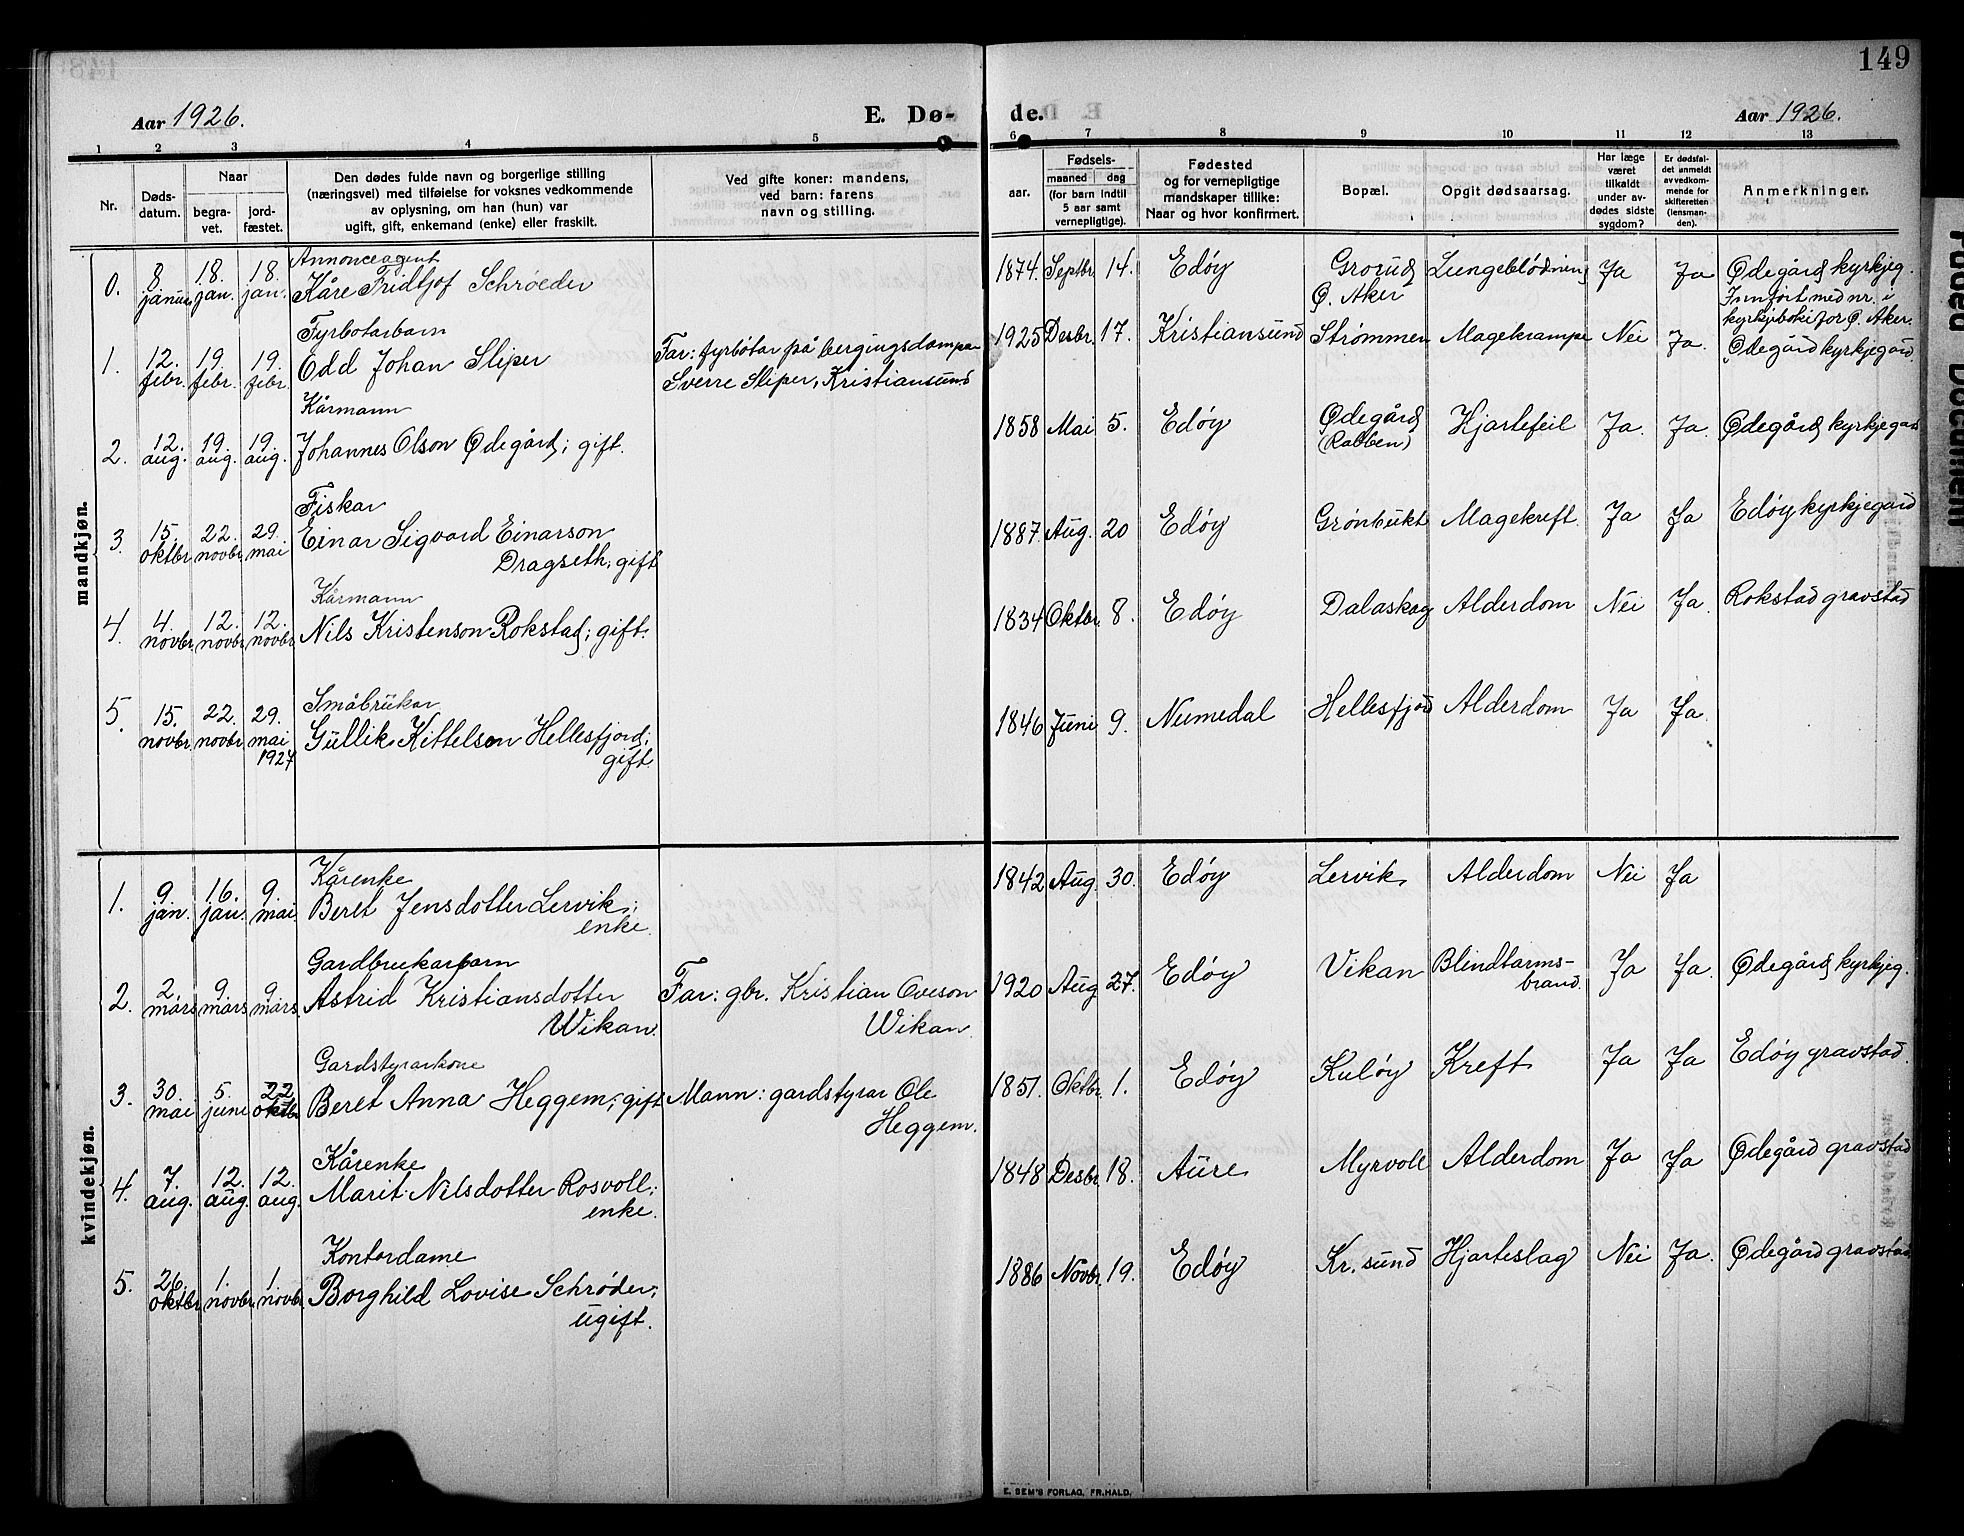 149
Aar 1926.
E. Dø- de.
Aar 1926.
1 2 3 4 5 6 7 8 9 10 11 12 13
Nr.
Døds-
datum.
Naar
begra-
vet.
jord-
fæstet.
Den dødes fulde navn og borgerlige stilling
(næringsvei) med tilføielse for voksnes vedkommende
av oplysning, om han (hun) var
ugift, gift, enkemand (enke) eller fraskilt.
Ved gifte koner: mandens,
ved barn: farens
navn og stilling.
Fødsels-
aar.
maaned
dag
(for barn indtil
5 aar samt
vernepligtige).
Fødested
og for vernepligtige
mandskaper tillike:
Naar og hvor konfirmert.
Bopæl.
Opgit dødsaarsag.
Har læge
været
tilkaldt
under av-
dødes sidste
sygdom?
Er dødsfal-
det anmeldt
av vedkom-
mende for
skifteretten
(lensman-
den).
Anmerkninger.
mandkjøn.
0. 8 januar 18. jan. 18. jan. Annonceagent
Kåre Fridtjof Schrøeder
1874. Septbr. 14. Edøy Grorud Ø. Aker Lungeblødning Ja Ja Ødegård kyrkjeg.
Innført med nr. i
kyrkjeboki for Ø. Aker.
1. 12. febr. 19. febr. 19. febr. Fyrbotarbarn
Odd Johan Sliper
Far: fyrbøtar på bergingsdampar
Sverre Sliper, Kristiansund
1925 Desbr. 17. Kristiansund Strømmen Magekrampe Nei Ja. Ødegård kyrkjegard.
2. 12. aug. 19. aug. 19. aug. Kårmann
Johannes Olson Ødegård; gift.
1858 Mai 5. Edøy Ødegård (Rabben) Hjartefeil Ja. Ja. Ødegård kyrkjegard
3. 15. oktbr 22. novbr 29. mai Fiskar
Einar Sigvard Einarson
Dragseth; gift
1887. Aug. 20 Edøy Grønbukt Magekreft. Ja Ja Edøy kyrkjegard
4. 4. novbr. 12. novbr 12. novbr Kårmann
Nils Kristenson Rokstad; gift.
1834 Oktbr. 8. Edøy Dalaskag Alderdom Nei Ja. Rokstad gravstad
5. 15. novbr 22. novbr 29. mai 1927 Småbrukar
Gullik Kittelson Hellesfjord;
gift.
1846 Juni 9. Numedal Hellesfjord Alderdom Ja Ja.
kvindekjøn.
1. 9 jan. 16. jan. 9 mai. Kårenke
Beret Jensdotter Lervik;
enke.
1842 Aug. 30. Edøy Lervik Alderdom Nei Ja
2. 2 mars 9 mars 9 mars. Gardbrukarbarn
Astrid Kristiansdotter
Wikan.
Far: gbr. Kristian Oveson
Wikan.
1920 Aug. 27. Edøy Vikan Blindtarms-
brand. Ja Ja. Ødegård kyrkjeg.
3. 30. mai 5. juni 22. oktbr Gardstyrarkone
Beret Anna Heggem; gift
Mann: gardstyrar Ole
Heggem.
1851. Oktbr. 1. Edøy Kuløy Kreft Ja Ja Edøy gravstad.
4. 7. aug. 12. aug. 12. aug. Kårenke
Marit Nilsdotter Rosvoll;
enke.
1848 Desbr. 18. Aure Myrvoll Alderdom Ja Ja Ødegård gravstad
5. 26. oktbr 1. novbr. 1. novbr. Kontordame
Borghild Lovise Schrøder;
ugift.
1886 Novbr. 19. Edøy Kr.sund Hjarteslag Nei Ja. Ødegård gravstad
E. SEM'S FORLAG, FR.HALD.
Faded Document